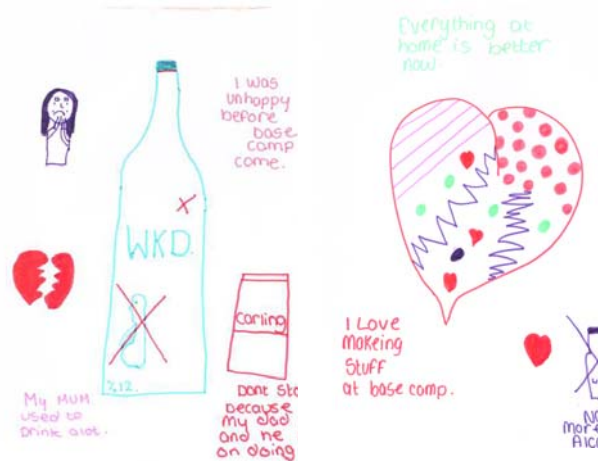 I was
unhappy
before
base
camp
come.
WKD.
%12.
My MUM
used to
Drink alot.
Carling
Dont
because
my dad
and he
on doing
Everything at
home is better
now
I Love
makeing
Stuff
at base comp.